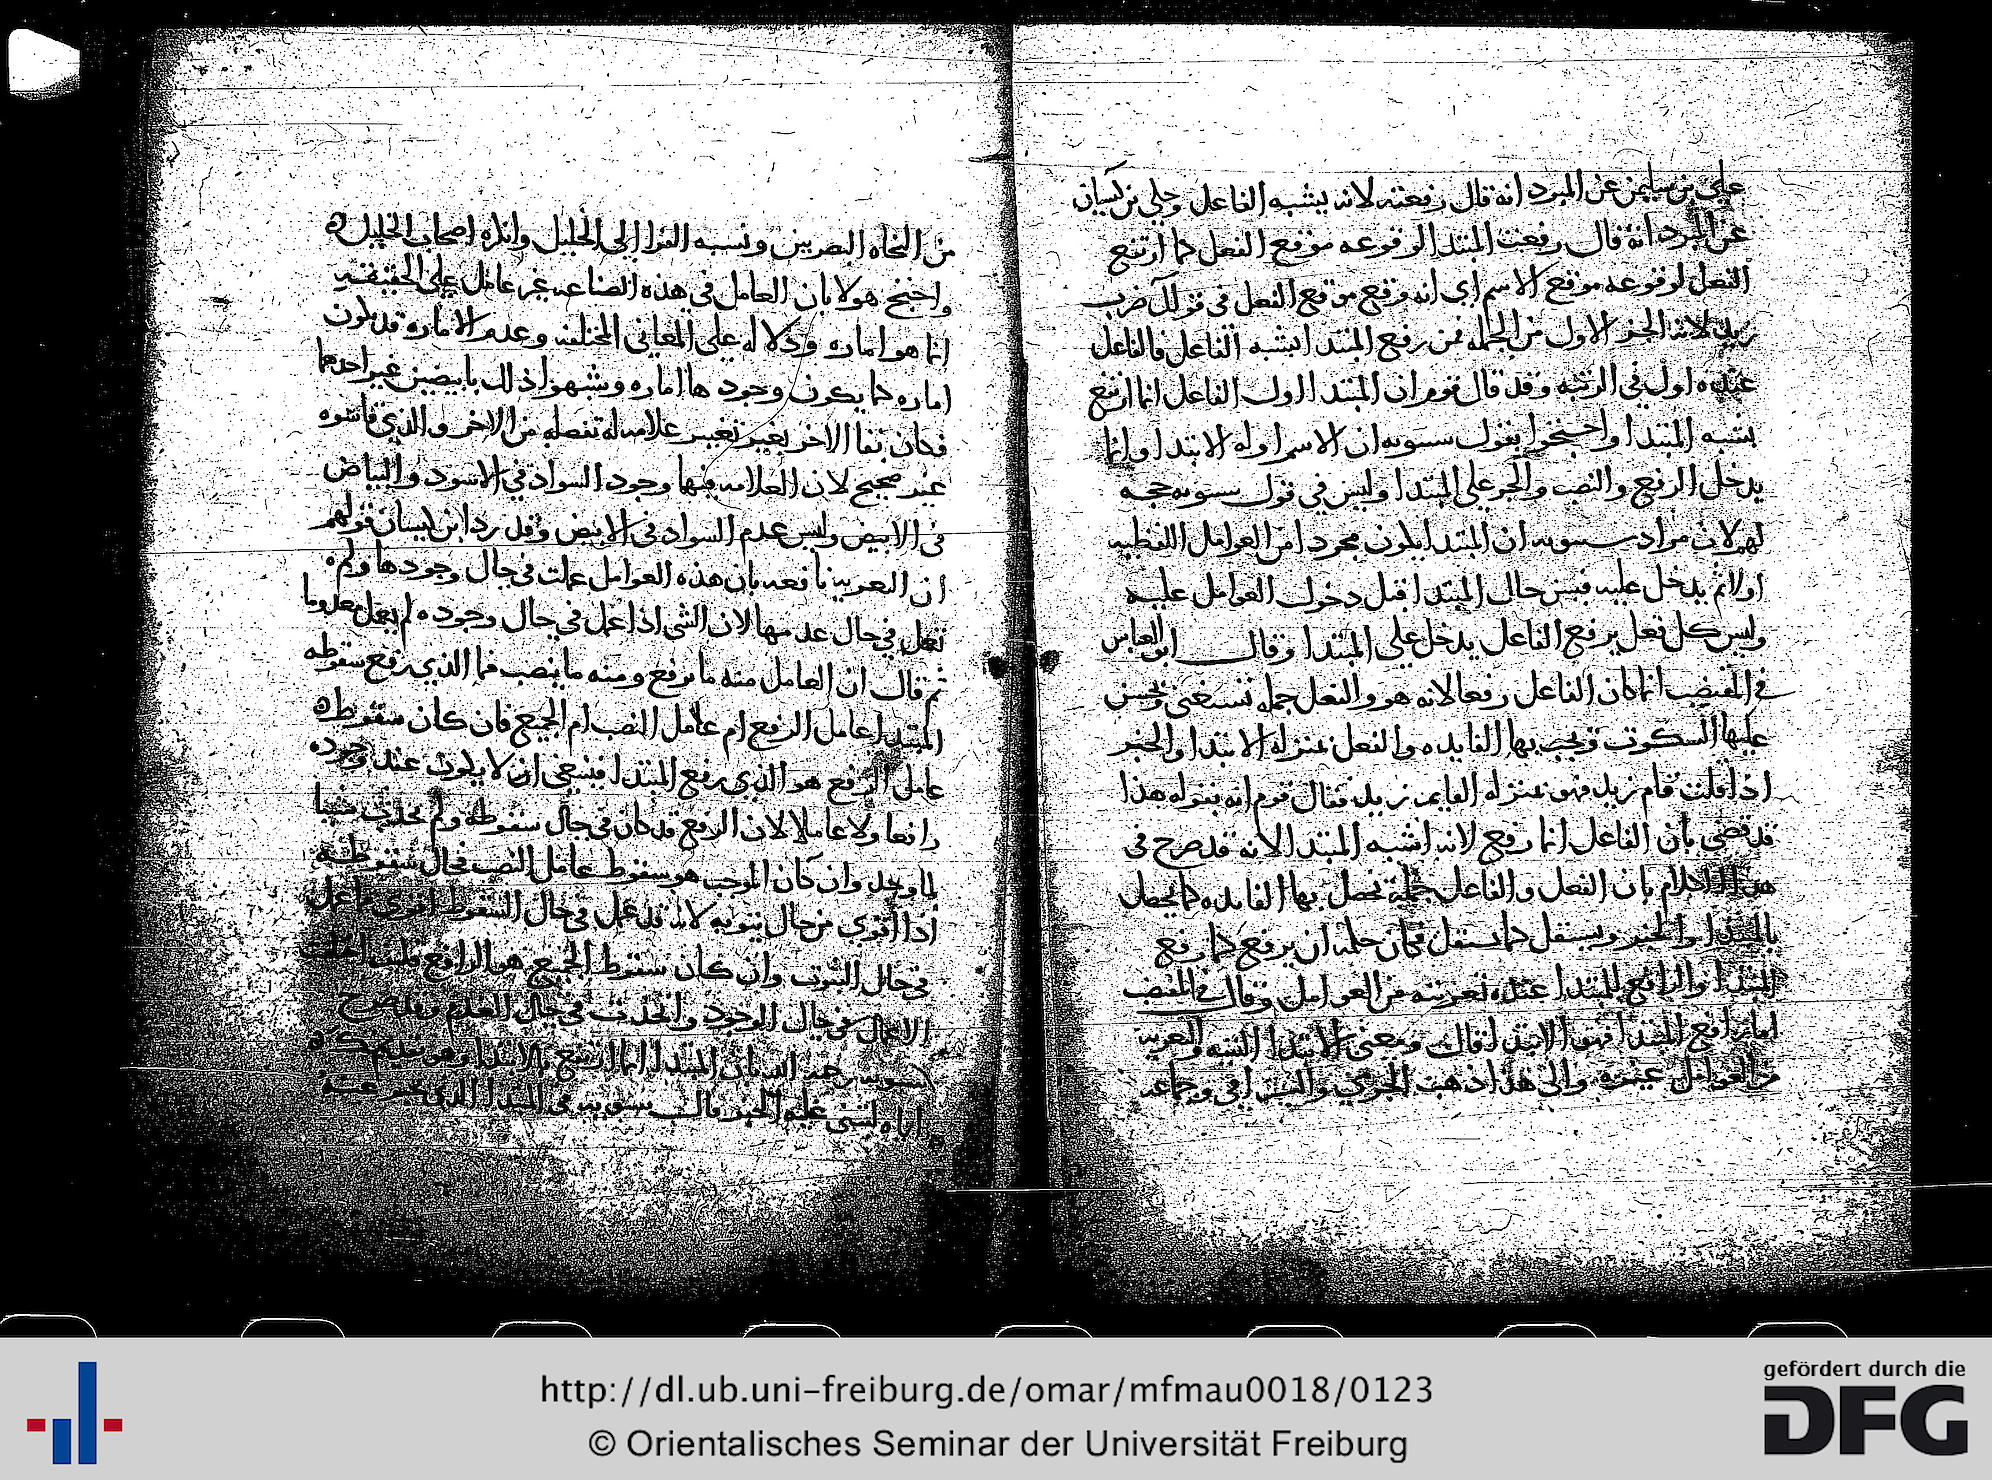 علي بن سليمن عن المبرد انه قال رفعته لانه يشبه الفاعل وحكي بن كيسان
عن المبرد انه قال رفعت المبتدا لوقوعه موقع الفعل كما ارتفع
الفعل لوقوعه موقع الاسم اي انه وقع موقع الفعل في قولك ضرب
زيد لانه الجز الاول من الجمله فمن رفع المبتدا يشبه الفاعل فالفاعل
عنده اول في الرتبه وقد قال قوم ان المبتدا اول الفاعل انما ارتفع
يشبه المبتدا واحتجوا بقول سيبويه ان الاسم اوله الابتدا وانما
يدخل الرفع والنصب والجر علي المبتدا وليس في قول سيبويه حجه
لهم لان مراد سيبويه ان المبتدا يكون مجردا من العوامل اللفظيه
اولا ثم يدخل عليه فبين حال المبتدا قبل دخول العوامل عليه
وليس كل فعل يرفع الفاعل يدخل علي المبتدا وقال ابو العباس
في المقتضب انما كان الفاعل رفعا لانه هو والفعل جمله تستغني ويحسن
عليها السكوت وتجب بها الفايده والفعل بمنزله الابتدا والخبر
اذا قلت قام زيد فهو بمنزله القايم زيد فقال قوم انه بقوله هذا
قد قضي بان الفاعل انما رفع لانه اشبه المبتدا لانه قد صرح في
هذا الكلام بان الفعل والفاعل جمله تحصل بها الفايده كما تحصل
بالمبتدا والخبر ويستقل كما يستقل فكان حكمه ان يرفع كما رفع
المبتدا والرافع للمبتدا عنده تعريته من العوامل وقال في المقتضب
اما رافع المبتدا فهو الابتدا قال ومعني الابتدا التنبيه والتعريه
من العوامل غيره والي هذا ذهب الجرمي والسيرافي وجماعه
من النحاه البصريين ونسبه الفرا الي الخليل وانكره اصحاب الخليل
واحتج هولا بان العامل في هذه الصناعه غير عامل علي الحقيقه
انما هو اماره ودلاله علي المعاني المختلفه وعدم الاماره قد يكون
اماره كما يكون وجودها اماره وشبهوا ذلك بابيضين غير احدهما
فكان بقا الاخر بغير تغيير علامه له تفصله من الاخر والذي قاسوه
غير صحيح لان العلامه فيها وجود السواد في الاسود والبياض
في الابيض وليس عدم السواد في الابيض وقد رد ابن كيسان قولهم
ان التعريه نافعه بان هذه العوامل عملت في حال وجودها ولم
تعمل في حال عدمها لان الشي اذا عمل في حال وجوده لم يعمل معدوما
ثم قال ان العامل منه ما يرفع ومنه ما ينصب فما الذي يرفع سقوطه
المبتدا عامل الرفع ام عامل النصب ام الجميع فان كان سقوط
عامل الرفع هو الذي رفع المبتدا فينبغي ان لا يكون عند وجوده
رافعا ولا عاملا لان الرفع قد كان في حال سقوطه ولم يحدث شيا
لما وجد وان كان الموجب هو سقوط عامل النصب فحال سقوطه
اذا اقوي من حال ثبوته لانه قد عمل في حال السقوط اقوي مما عمل
في حال الثبوت وان كان سقوط الجميع هو الرافع فلم
الاعمال في حال الوجود والحذف في حال العدم وقد صرح
سيبويه رحمه الله بان المبتدا انما ارتفع بالابتدا وهو تقديمك
اياه لتبني عليه الخبر قال سيبويه في المبتدا الذي يخبر عنه
http://dl.ub.uni-freiburg.de/omar/mfmau0018/0123
© Orientalisches Seminar der Universität Freiburg
gefördert durch die
DFG